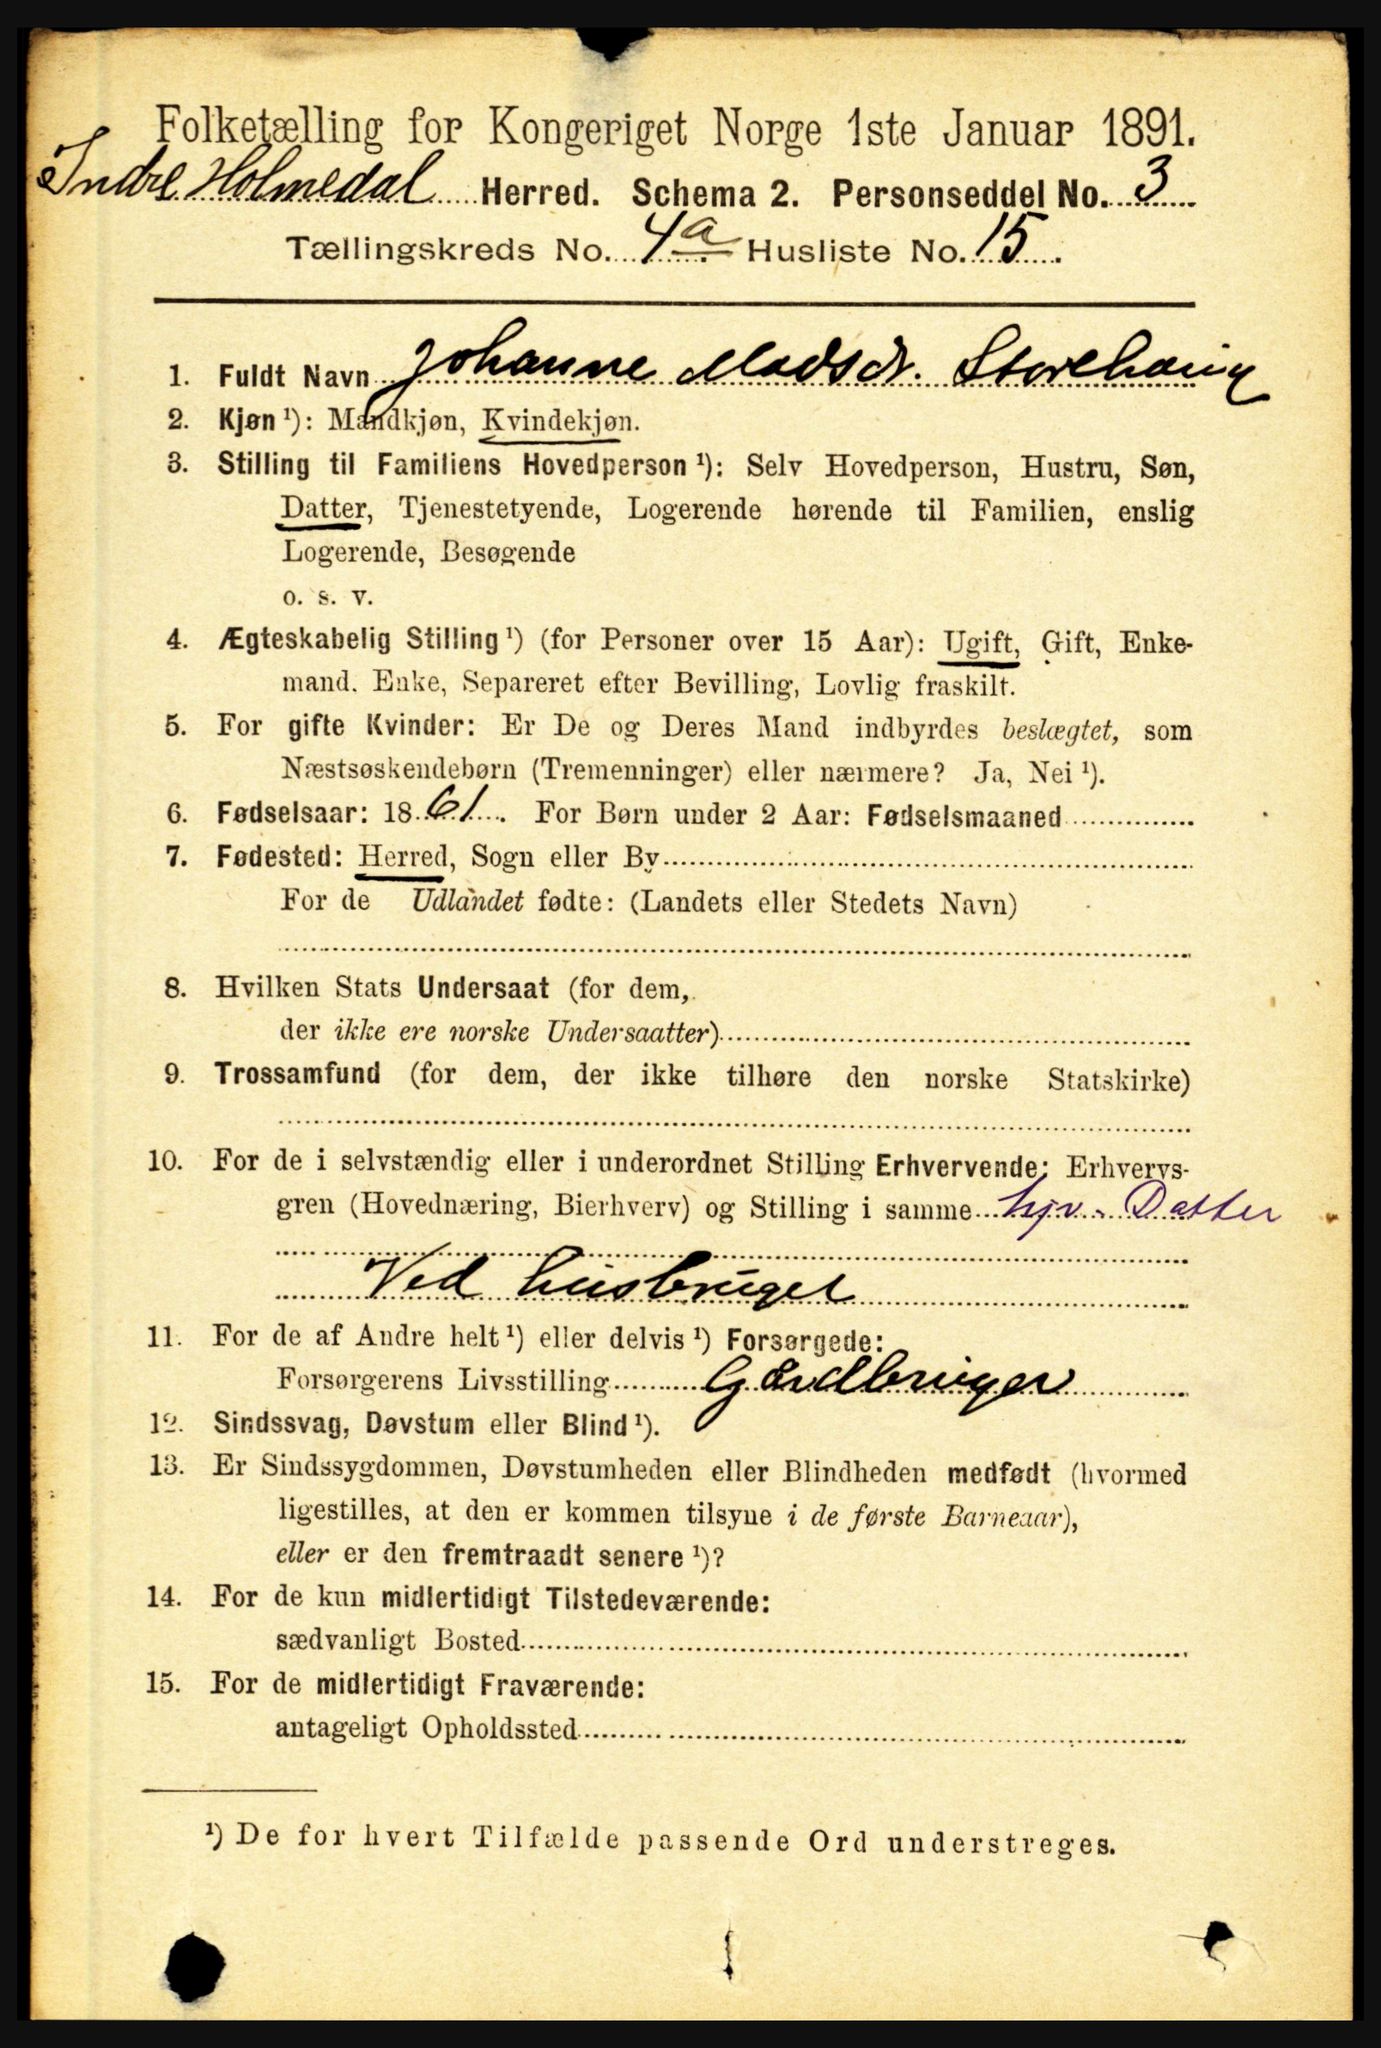 Folketælling for Kongeriget Norge 1ste Januar 1891.
Indre Holmedal Herred. Schema 2. Personseddel No. 3
Tællingskreds No. 4a Husliste No. 15
1. Fuldt Navn Johanne Madsdr. Storehaug
2. Kjøn ¹): Mandkjøn, Kvindekjøn.
3. Stilling til Familiens Hovedperson ¹): Selv Hovedperson, Hustru, Søn,
Datter, Tjenestetyende, Logerende hørende til Familien, enslig
Logerende, Besøgende
o. s. v.
4. Ægteskabelig Stilling ¹) (for Personer over 15 Aar): Ugift, Gift, Enke-
mand. Enke, Separeret efter Bevilling, Lovlig fraskilt.
5. For gifte Kvinder: Er De og Deres Mand indbyrdes beslægtet, som
Næstsøskendebørn (Tremenninger) eller nærmere? Ja, Nei ¹).
6. Fødselsaar: 1861. For Børn under 2 Aar: Fødselsmaaned
7. Fødested: Herred, Sogn eller By
For de Udlandet fødte: (Landets eller Stedets Navn)
8. Hvilken Stats Undersaat (for dem,
der ikke ere norske Undersaatter)
9. Trossamfund (for dem, der ikke tilhøre den norske Statskirke)
10. For de i selvstændig eller i underordnet Stilling Erhvervende: Erhvervs-
gren (Hovednæring, Bierhverv) og Stilling i samme hjv. Datter
Ved husbruget
11. For de af Andre helt ¹) eller delvis ¹) Forsørgede:
Forsørgerens Livsstilling Gardbruger
12. Sindssvag, Døvstum eller Blind ¹).
13. Er Sindssygdommen, Døvstumheden eller Blindheden medfødt (hvormed
ligestilles, at den er kommen tilsyne i de første Barneaar),
eller er den fremtraadt senere ¹)?
14. For de kun midlertidigt Tilstedeværende:
sædvanligt Bosted
15. For de midlertidigt Fraværende:
antageligt Opholdssted
¹) De for hvert Tilfælde passende Ord understreges.